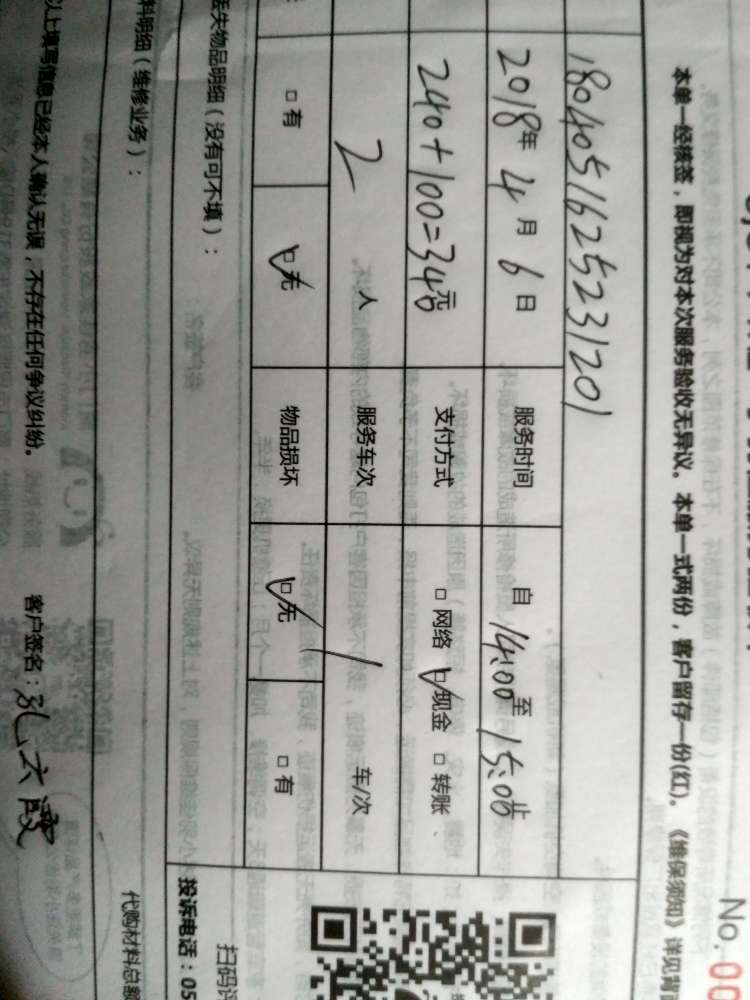 No. 00
本单一经核签，即视为对本次服务验收无异议。本单一式两份，客户留存一份(红)。《维保须知》详见背
18040516252312​01
2018年 4月 6日 服务时间 自 14:00 至 15:00 止
240+100=340元 支付方式 □ 网络 ☑ 现金 □ 转账
2 人 服务车次 1 车/次
□ 有 ☑ 无 物品损坏 ☑ 无 □ 有
丢失物品明细（没有可不填）：
投诉电话：05
扫码评
料明细（维修业务）：
代购材料总额
以上填写信息已经本人确认无误，不存在任何争议纠纷。 客户签名：孔六霞